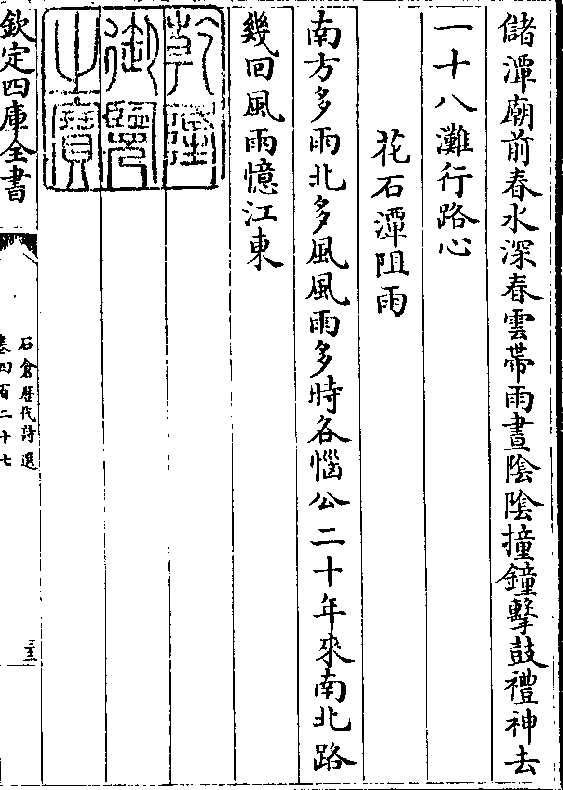 儲潭廟前春水深春雲帶雨晝隂隂撞鐘擊鼓禮神去
一十八灘行路心
花石潭阻雨
南方多雨北多風風雨多時各惱公二十年來南北路
幾回風雨憶江東
乾隆御覽之寶
欽定四庫全書
石倉歴代詩選
卷四百二十七